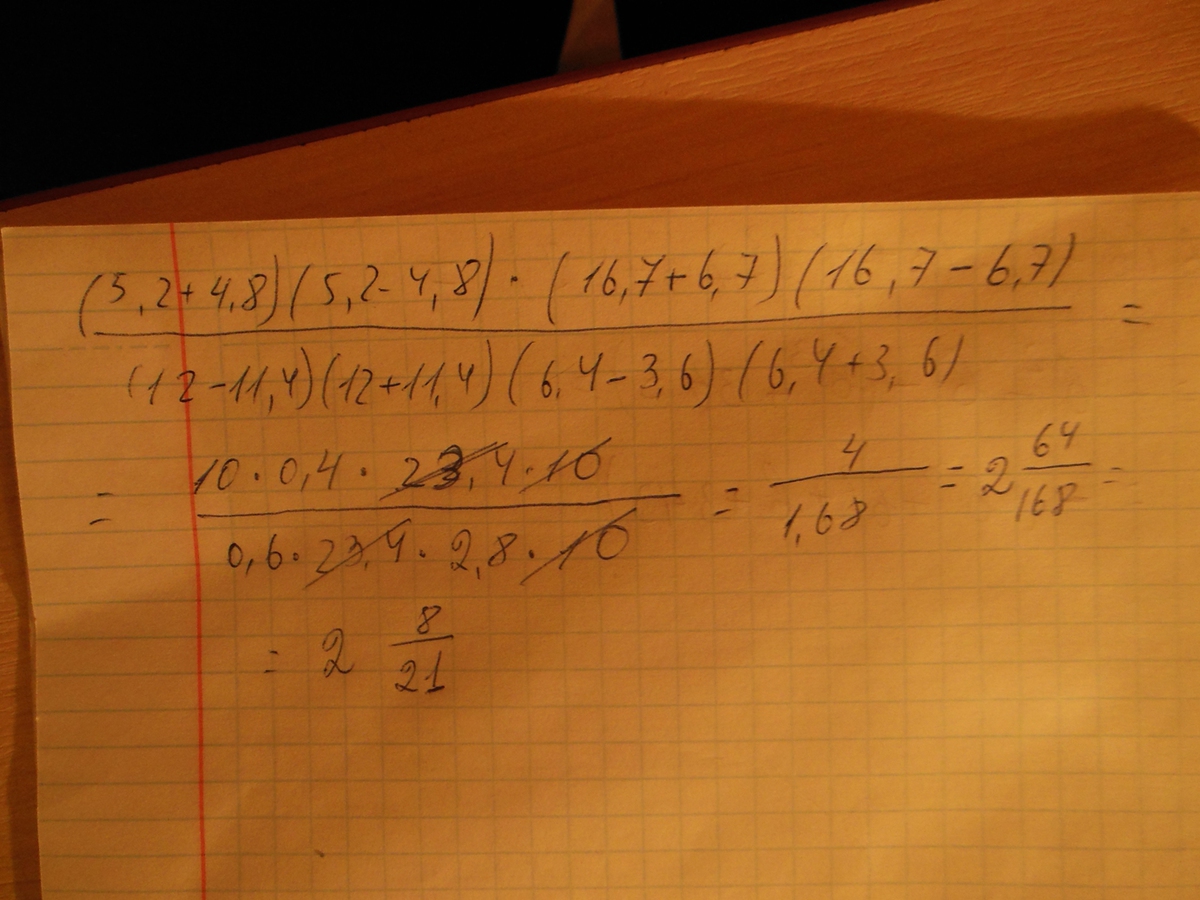 (5,2+4,8)(5,2-4,8)·(16,7+6,7)(16,7-6,7) =
(12-11,4)(12+11,4)(6,4-3,6)(6,4+3,6)
= 10·0,4·23,4·10 / 0,6·23,4·2,8·10 = 4/1,68 = 2 64/168 =
= 2 8/21